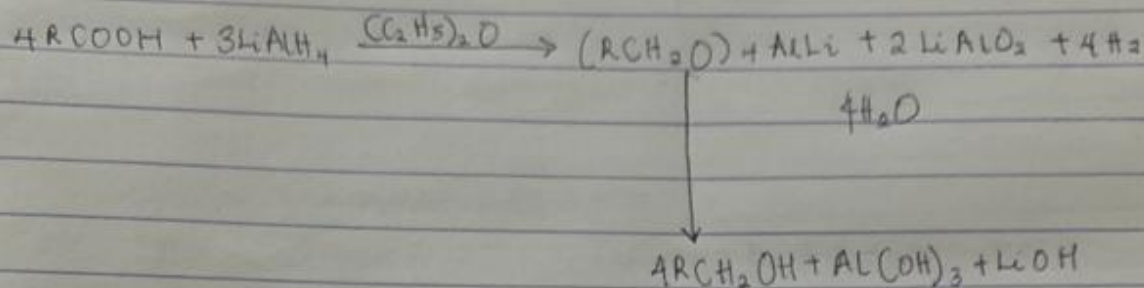 4RCOOH + 3LiAlH₄ (C₂H₅)₂O → (RCH₂O)₄AlLi + 2LiAlO₂ + 4H₂
4H₂O
4RCH₂OH + Al(OH)₃ + LiOH